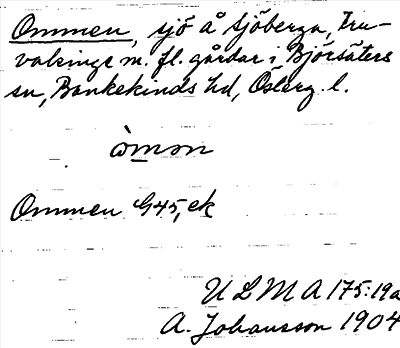 Ommen, sjö å Sjöberga, Tru-
valsinge m. fl. gårdar i Björsäters
sn, Bankekinds hd, Österg. l.
òmon
Ommen G45, ek
ULMA 175:19a
A. Johansson 1904